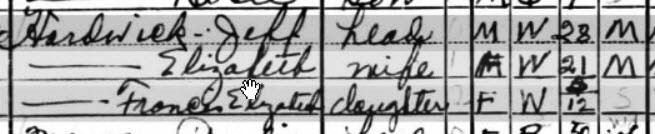 Hardwick Jeff head M W 23 M
—— Elizabeth wife W 21 M
—— Frances Elizabeth daughter F W 5/12 S